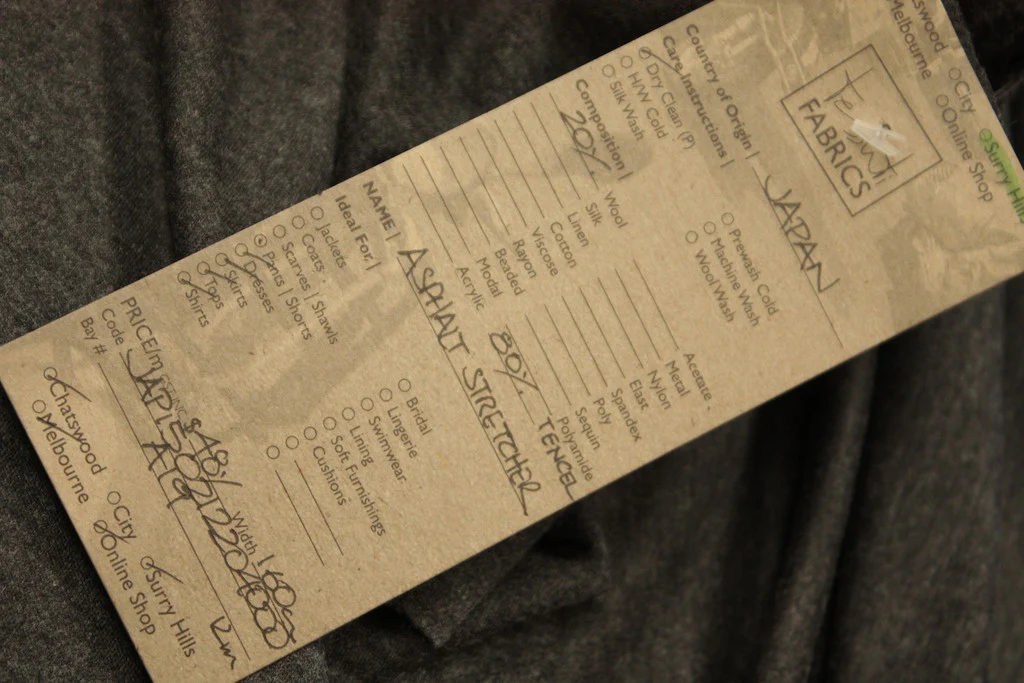 swood
Melbourne
City
Online Shop
Surry Hills
Tessuti
FABRICS
Country of Origin | JAPAN
Care Instructions |
Dry Clean (P)
H/W Cold
Silk Wash
Prewash Cold
Machine Wash
Wool Wash
Composition |
20% Wool
Silk
Linen
Cotton
Viscose
Rayon
Beaded
Modal
Acrylic
Acetate
Metal
Nylon
Elast
Spandex
Poly
Sequin
Polyamide
80% TENCEL
NAME | ASPHALT STRETCHER
Ideal For |
Jackets
Coats
Scarves | Shawls
Pants | Shorts
Dresses
Skirts
Tops
Shirts
Bridal
Lingerie
Swimwear
Lining
Soft Furnishings
Cushions
PRICE/m $48/ Width | 160c
Code
Bay # A19
12m
Chatswood
Melbourne
City
Online Shop
Surry Hills